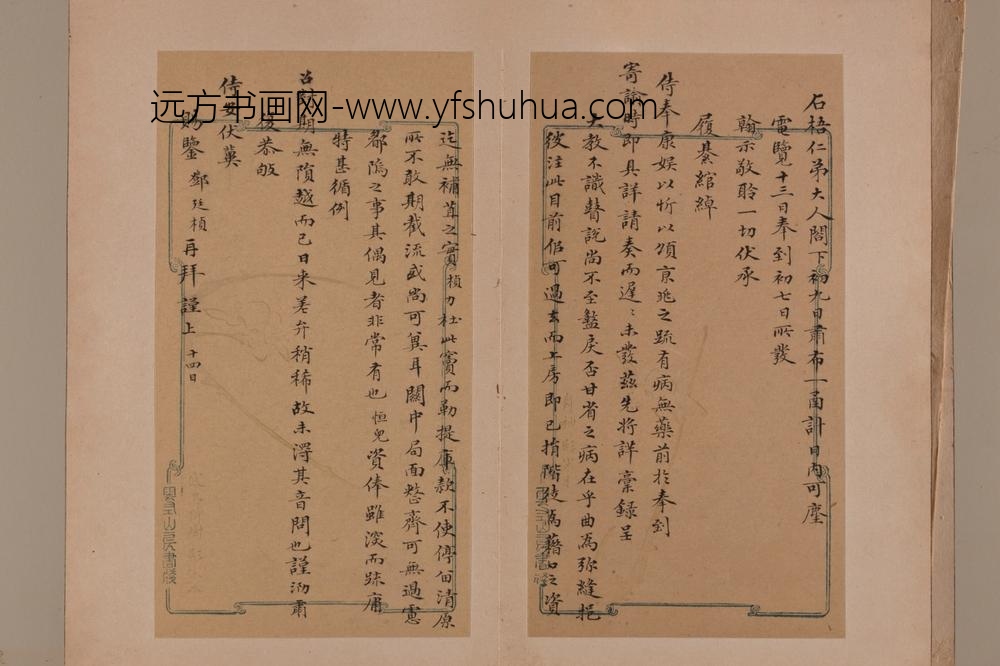 石梧仁弟大人閣下初九日肅布一函計日內可塵
電覽十三日奉到初七日所發
翰示敬聆一切伏承
履綦綰綽
侍奉康娛以忻以頌京兆之疏有病無藥前於奉到
寄諭時即具詳請奏而遲遲未發茲先將詳稾錄呈
大教不識瞽說尚不至盩戾否甘省之病在乎曲為弥縫挹
彼注此目前佀可過去而工房即已捐階徒為藉口之資
迄無補苴之實楨力杜此竇而勒提庫款不使停留清原
所不敢期截流或尚可冀耳關中局面整齊可無過慮
都隝之事其偶見者非常有也恒兒資俸雖淺而疎庸
特甚循例
召期無隕越而已日來差弁稍稀故未得其音問也謹泐肅
復恭敂
侍安伏冀
賜鑒 鄧廷楨再拜謹上 十四日
雲左山房書牋
雲左山房書牋
远方书画网-www.yfshuhua.com